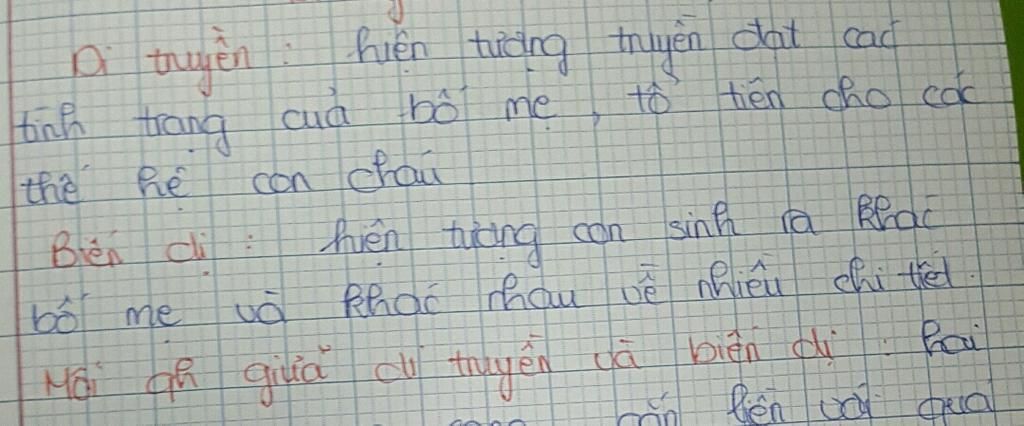 Di truyền : hiện tượng truyền đạt các
tính trạng của bố mẹ, tổ tiên cho các
thế hệ con cháu
Biến dị : hiện tượng con sinh ra khác
bố mẹ và khác nhau về nhiều chi tiết.
Mối qh giữa di truyền và biến dị : hai
gắn liền với quá